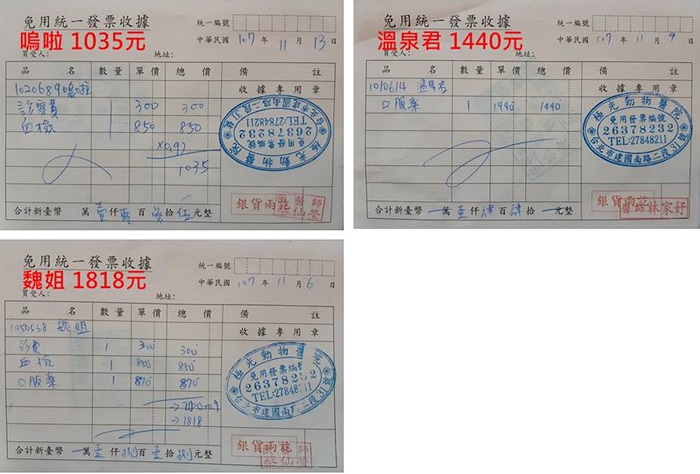 免用統一發票收據
統一編號
嗚啦 1035元
中華民國 107 年 11 月 13 日
買受人: 地址:
品名 數量 單價 總價 備註
收據專用章
1020689 嗚啦
診察費 1 300 300
血檢 1 850 850
x0.9
1035
極光動物醫院
免用發票編號
26378232
TEL:27848211
台北市建國南路二段31號
銀貨兩訖
合計新臺幣 萬壹仟零百參拾伍元整
免用統一發票收據
統一編號
溫泉君 1440元
中華民國 107 年 11 月 9 日
買受人: 地址:
品名 數量 單價 總價 備註
收據專用章
1010614 溫泉君
口服藥 1 1440 1440
極光動物醫院
免用發票編號
26378232
TEL:27848211
台北市建國南路二段31號
銀貨兩訖
醫師林家妤
合計新臺幣 萬壹仟肆百肆拾元整
免用統一發票收據
統一編號
魏姐 1818元
中華民國 107 年 11 月 6 日
買受人: 地址:
品名 數量 單價 總價 備註
收據專用章
1050538 魏姐
診費 1 300 300
血檢 1 850 850
口服藥 1 870 870
→2020x0.9
→1818
極光動物醫院
免用發票編號
26378232
TEL:27848211
台北市建國南路二段31號
銀貨兩訖
合計新臺幣 萬壹仟捌百壹拾捌元整